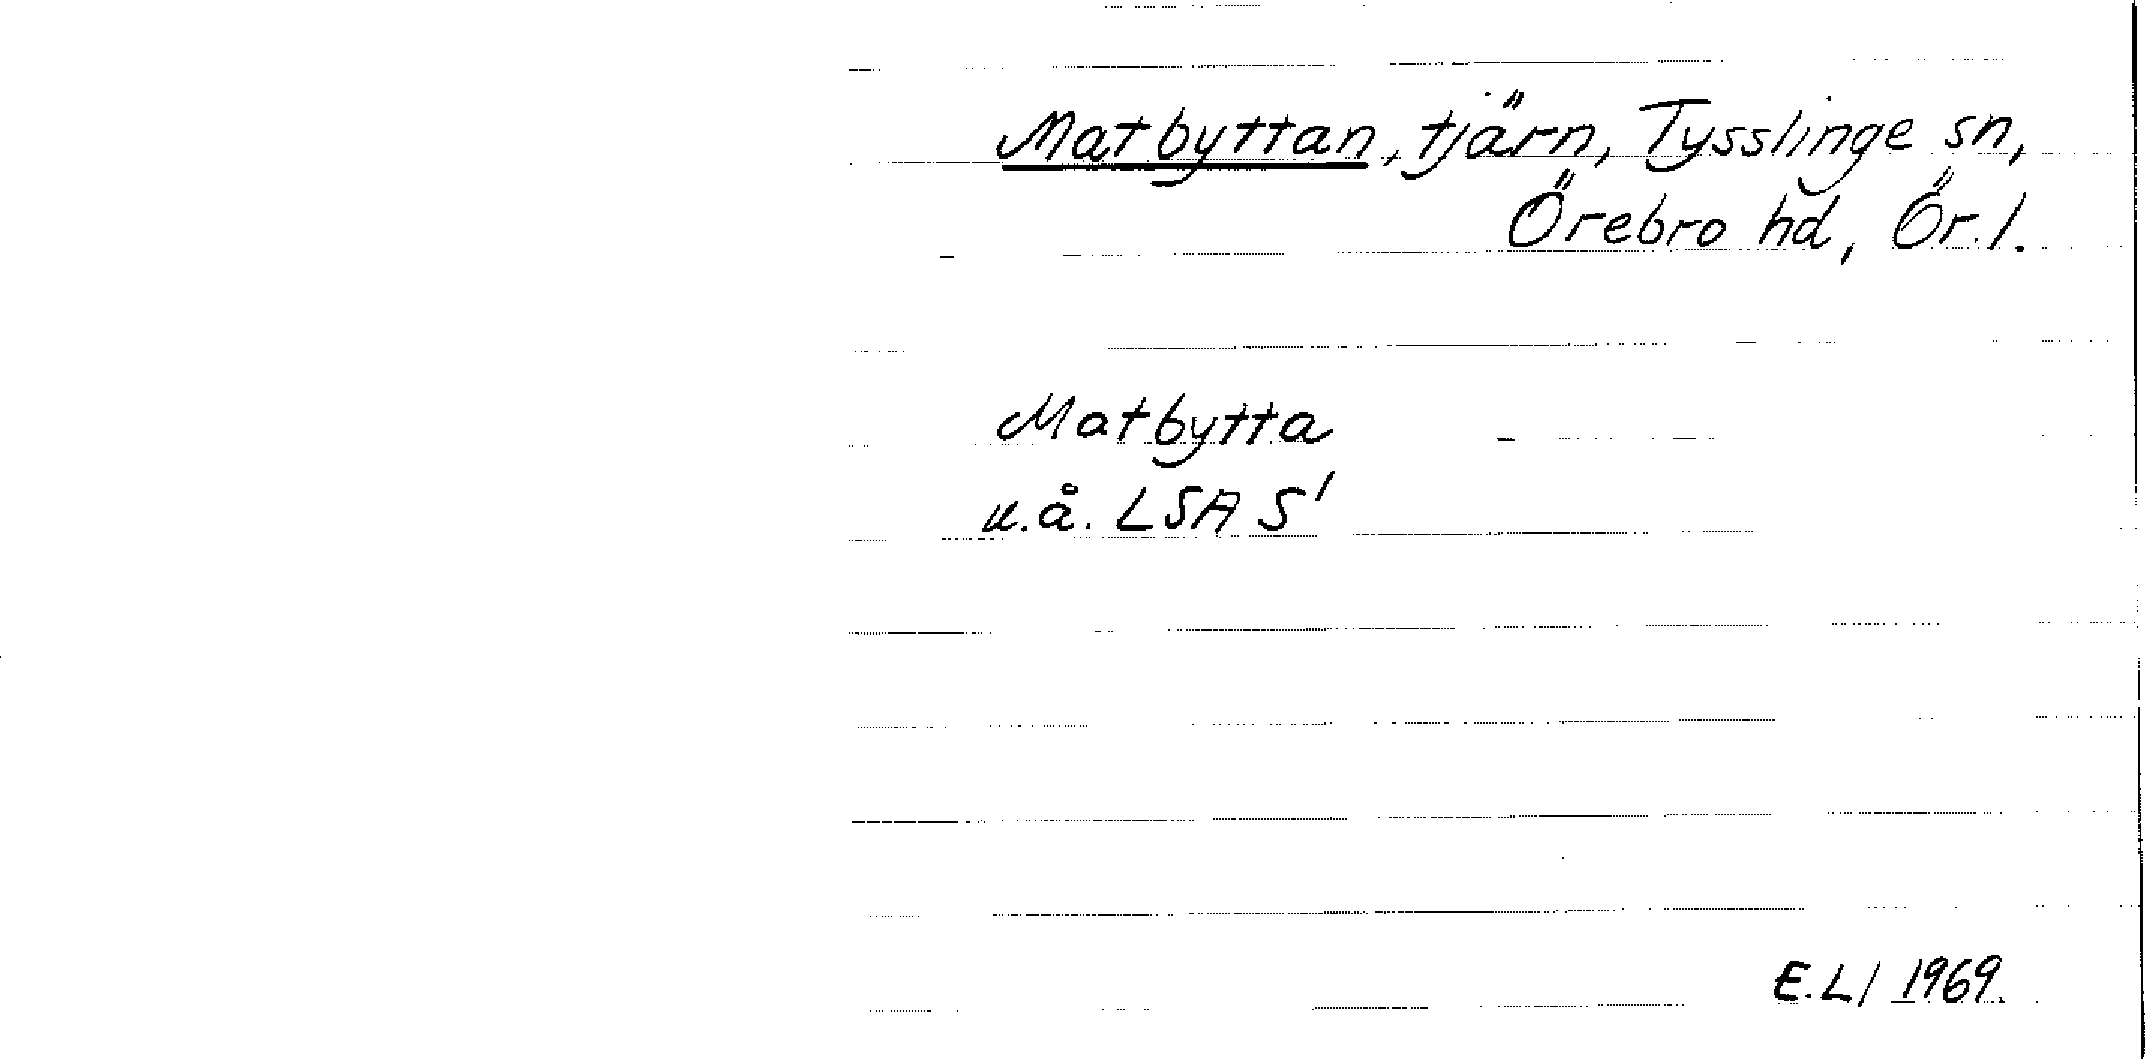 Matbyttan, tjärn, Tysslinge sn,
Örebro hd, Ör. l.
Matbytta
u.å. LSA S'
E.L/ 1969.